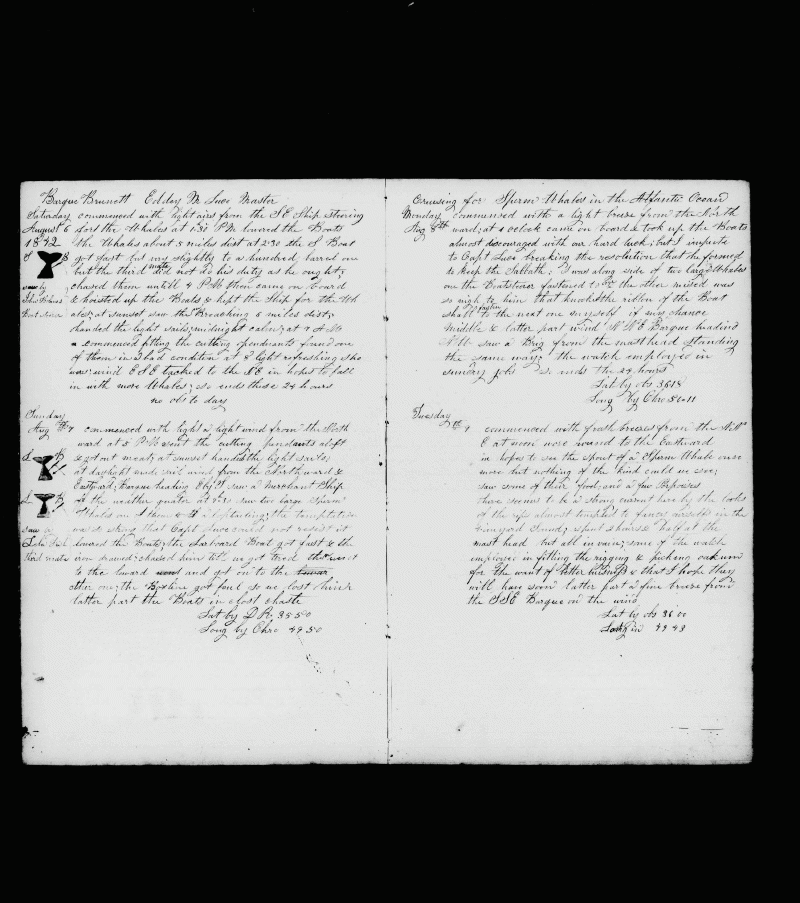 Barque Brunett Eldey M Luce Master
Saturday commenced with light airs from the SE Ship steering
August 6 fort the Whales at 1.30 PM lowered the Boats
1842 the Whales about 5 miles dist at 2.30 the S Boat
got fast but my slightly to a hundred barrel one
but the third mate did not do his duty as he ought;
saw by chased them untill 4 PM then came on board
& hoisted up the Boats & kept the Ship for the Wh
ales; at sunset saw them Broaching 5 miles dist;
handed the light sails; midnight calm; at 9 AM
commenced fitting the cutting pendants found one
of them in a bad condition at 3 light refreshing sho
wers; wind ESE tacked to the NE in hopes to fall
in with more Whales; so ends these 24 hours
no obs to day
Sunday
Aug th 7 commenced with light a light wind from the North
ward at 5 PM sent the cutting pendants aloft
& got out meat; at sunset handed the light sails;
at daylight made sail wind from the Northward &
Eastward; Barque heading saw a Merchant Ship
at the weather quater at 7.30 saw two large Sperm
Whales the temptation
saw by was so strong that Capt Luce could not resist it
lowered the Boats; the Larboard Boat got fast & the
third mate iron drawed; chased him till we got the west
to the luward went and got on to the
other one; the line got foul & we lost him
latter part the Boats in close chase
Lat by D R. 35 50
Long by Chro 49.50
Cruising for Sperm Whales in the Atlantic Ocean
Monday commenced with a light breeze from the North
Aug 8th ward; at 4 oclock came on board & took up the Boats
almost discouraged with our hard luck; but I impute
to Capt Luce breaking the resolution that he formed
to keep the Sabbath; I was along side of two large Whales
one the Boatsteerer fastened to & the other missed was
so nigh to him that he the of the Boat
shall try fasten to the next one myself if any chance
middle & latter part wind N N E Barque heading
N W saw a Brig from the mast head standing
the same way; the watch employed in
sundry jobs so ends the 24 hours
Lat by obs 36 18
Long by Chro 50-11
Tuesday
th 9 commenced with fresh breeses from the N N
E at noon wore round to the Eastward
in hopes to see the spout of a Sperm Whale once
more but nothing of the kind could we see;
saw some of their food; and a few Porpoises
there seems to be a strong current here by the looks
of the rips almost tempted to fancy ourselves in the
Vineyard Sound; spent 2 hours & half at the
mast head but all in vain; some of the watch
employed in fitting the rigging & picking oakum
for the want of better business & that I hope they
will have soon latter part a fine breeze from
the SSE Barque on the wind
Lat by obs 36 00
Long in 49 43